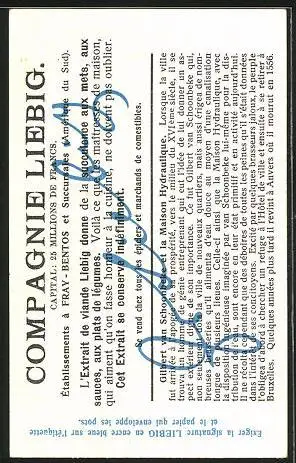 COMPAGNIE LIEBIG.
CAPITAL: 25 MILLIONS DE FRANCS.
Établissements à FRAY-BENTOS et Succursales (Amérique du Sud).
L'Extrait de viande Liebig donne de la succulence aux mets, aux
sauces, aux plats de légumes. Voilà ce que les maîtresses de maison,
qui aiment qu'on fasse honneur à la cuisine, ne doivent pas oublier.
Cet Extrait se conserve indéfiniment.
Se vend chez tous les épiciers et marchands de comestibles.
Gilbert van Schoonbeke et la Maison Hydraulique. Lorsque la ville
fut arrivée à l'apogée de sa prospérité vers le milieu du XVIème siècle, il se
trouva un homme de génie entreprenant qui eut l'idée de lui donner un as-
pect extérieur digne de son importance. Ce fut Gilbert van Schoonbeke qui
non seulement dota la ville de nouveaux quartiers, mais aussi érigea de nom-
breuses brasseries qu'il alimenta d'eau douce au moyen d'une canalisation
longue de plusieurs lieues. Celle-ci ainsi que la Maison Hydraulique, avec
la disposition ingénieuse imaginée par van Schoonbeke lui-même pour la dis-
tribution de l'eau, sont encore en leur état primitif et en activité aujourd'hui.
Il ne récolta cependant que des déboires de toutes les peines qu'il s'était données
dans l'intérêt de ses concitoyens. Excité par quelques brasseurs jaloux, le peuple
l'obligea d'abord à chercher un refuge à l'Hôtel de ville et ensuite à se retirer à
Bruxelles. Quelques années plus tard il revint à Anvers où il mourut en 1556.
Exiger la signature LIEBIG en encre bleue sur l'étiquette
et le papier qui enveloppe les pots.